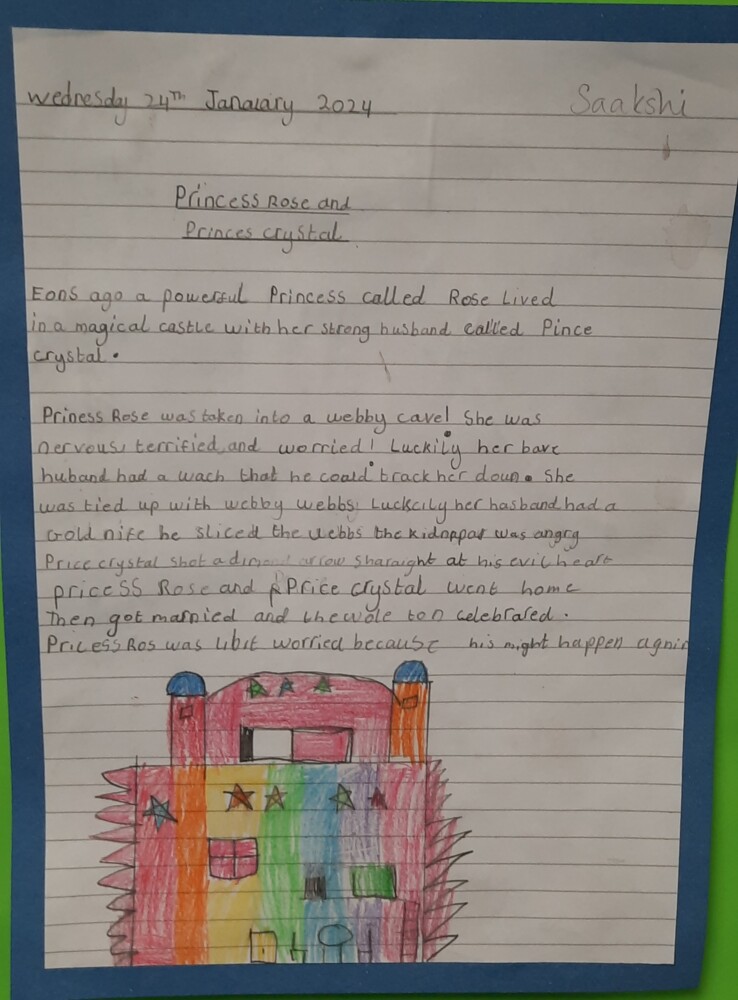 Wednesday 24Th Janauary 2024
Saakshi
Princess Rose and
Princes crystal
Eons ago a powerful Princess called Rose Lived
in a magical castle with her strong husband called Pince
crystal.
Priness Rose was taken into a webby cave! She was
nervous, terrified, and worried! Luckily her bave
huband had a wach that he could track her doun. She
was tied up with webby webbs. Luckcily her hasband had a
Gold nife he sliced the webbs the kidnppar was angry
Price crystal shot a arrow sharaight at his evil heart
pricess Rose and Price crystal went home
Then got marnied and the wole ton celebrated.
Pricess Ros was worried because his might happen agnin